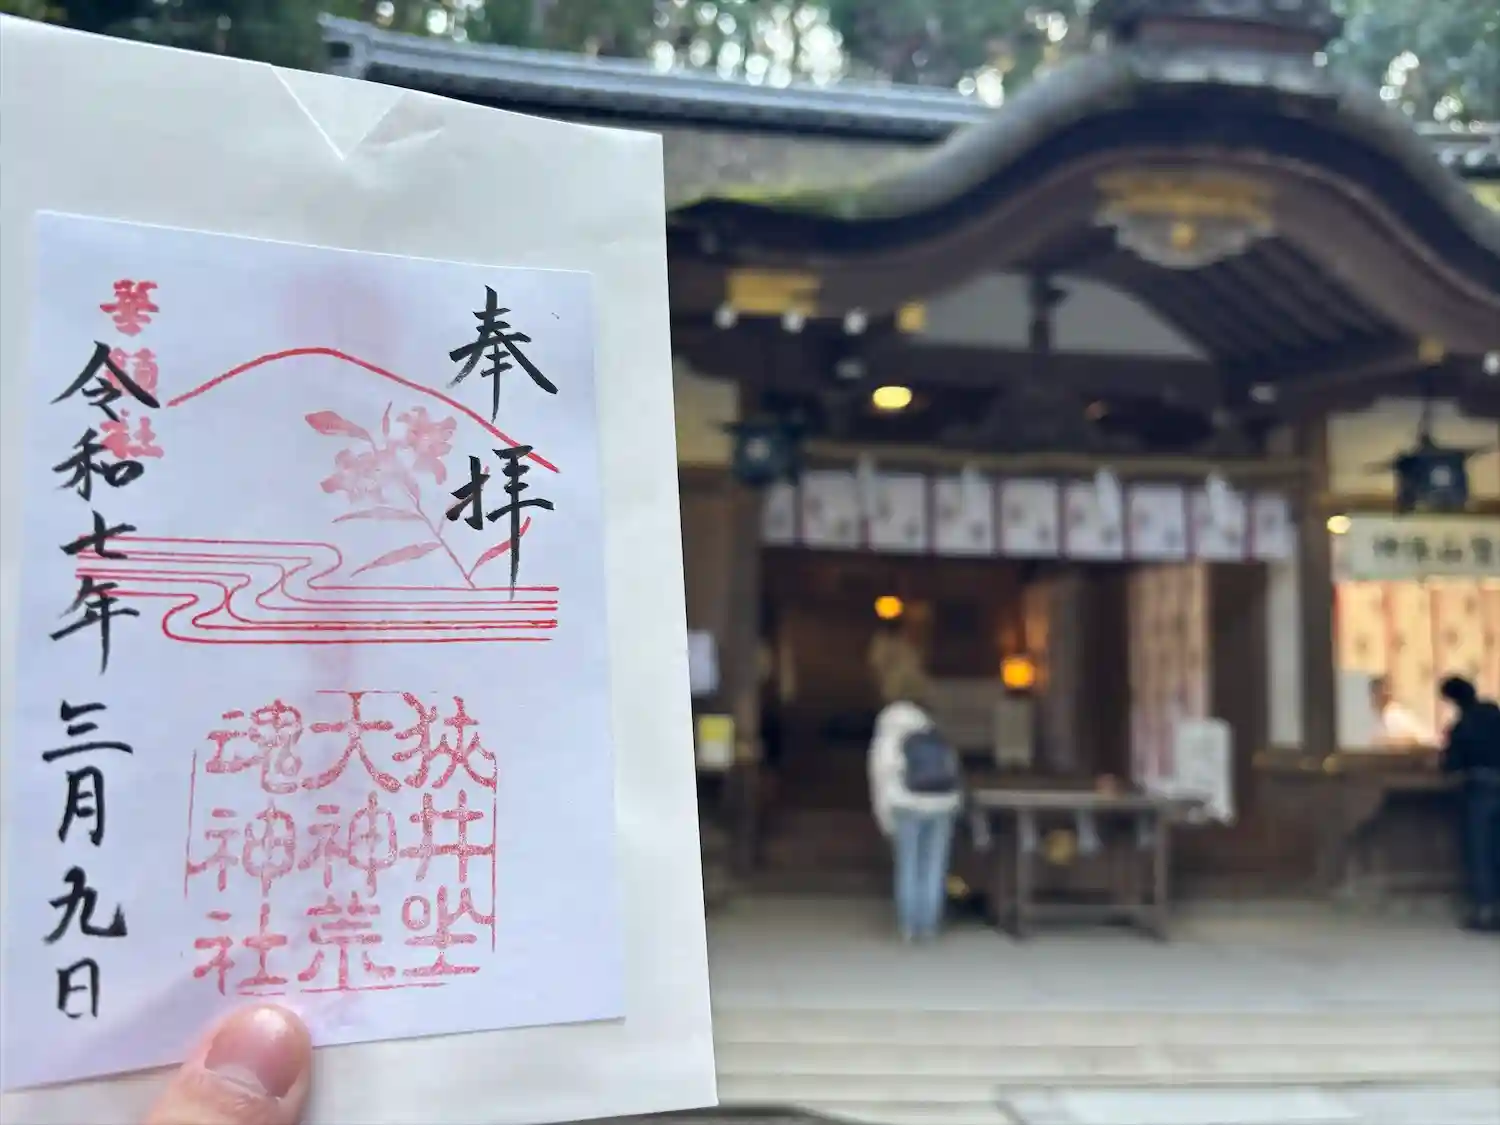 奉拝
華鎮社
令和七年三月九日
狭井坐
大神荒
魂神社